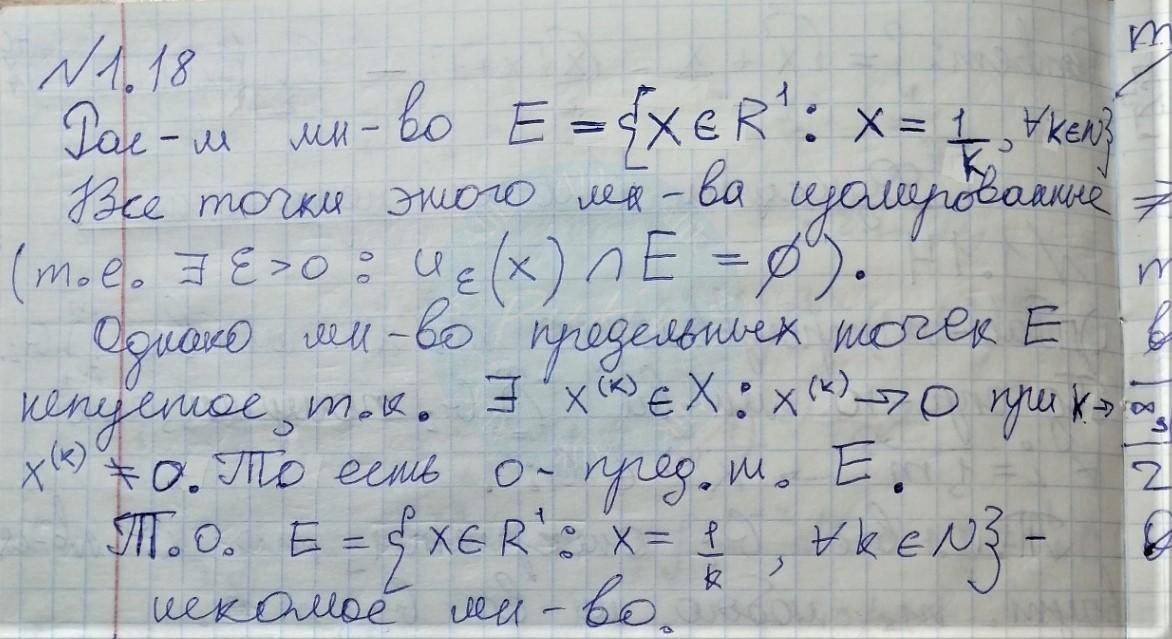 №1.18
Рас-м мн-во E = {x ∈ R¹ : x = 1/k, ∀k∈N}
Все точки этого мн-ва изолированные
(т.е. ∃ ε > 0 : u_ε(x) ∩ E = ∅).
Однако мн-во предельных точек E
непустое, т.к. ∃ x^(k) ∈ X : x^(k) → 0 при k→∞,
x^(k) ≠ 0. То есть 0 - пред. т. E.
Т.о. E = {x ∈ R¹ : x = 1/k, ∀k ∈ N} -
искомое мн-во.